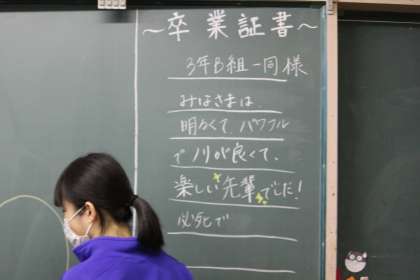 ～卒業証書～
3年B組一同様
みなさまは、
明るくて、パワフル
でノリが良くて、
楽しい先輩でした！
必死で